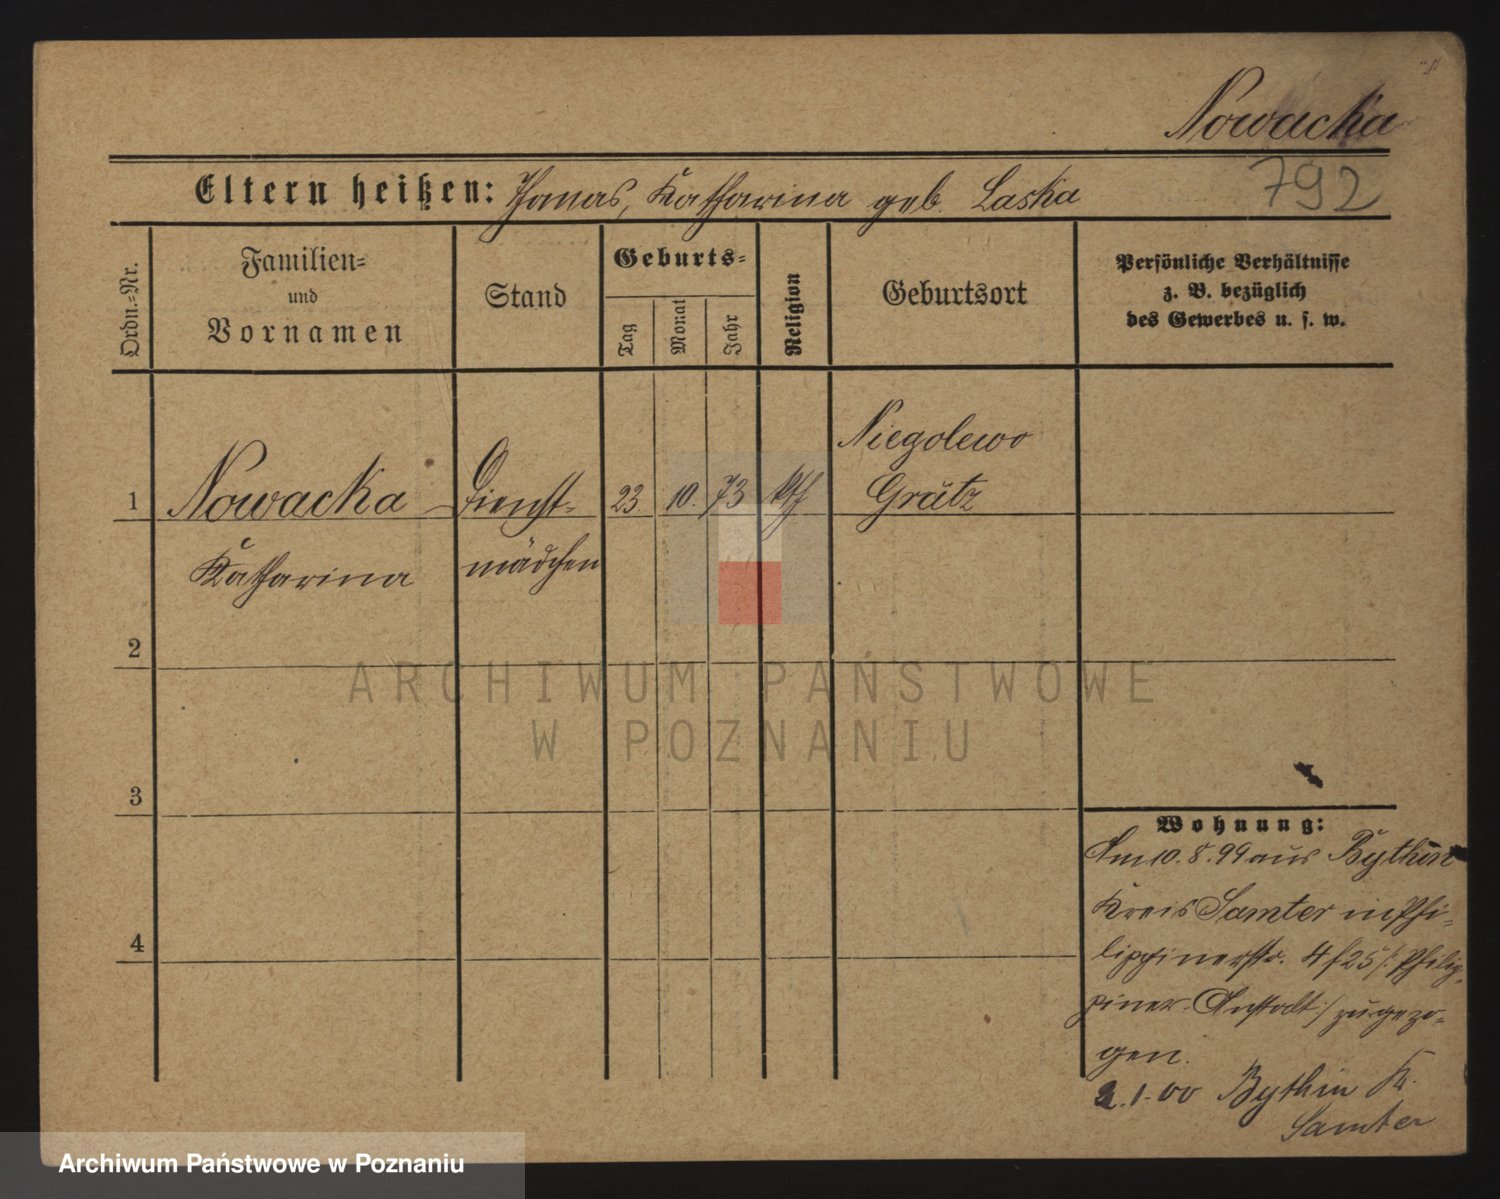 Nowacka
792
Eltern heißen: Thomas, Katharina geb. Laska
Ordn.-Nr.
Familien-
und
Vornamen
Stand
Geburts-
Tag
Monat
Jahr
Religion
Geburtsort
Persönliche Verhältnisse
z. B. bezüglich
des Gewerbes u. s. w.
1
Nowacka
Katharina
Dienst-
mädchen
23
10.
73
kth
Niegolewo
Grätz
2
3
4
Wohnung:
Am 10.8.99 aus Bythin
Kreis Samter in Phi-
lippinerstr. 4 f 25 /: Philip-
piner-Anstalt :/ zugezo-
gen.
2.1.00 Bythin Kr.
Samter
ARCHIWUM PAŃSTWOWE
W POZNANIU
Archiwum Państwowe w Poznaniu